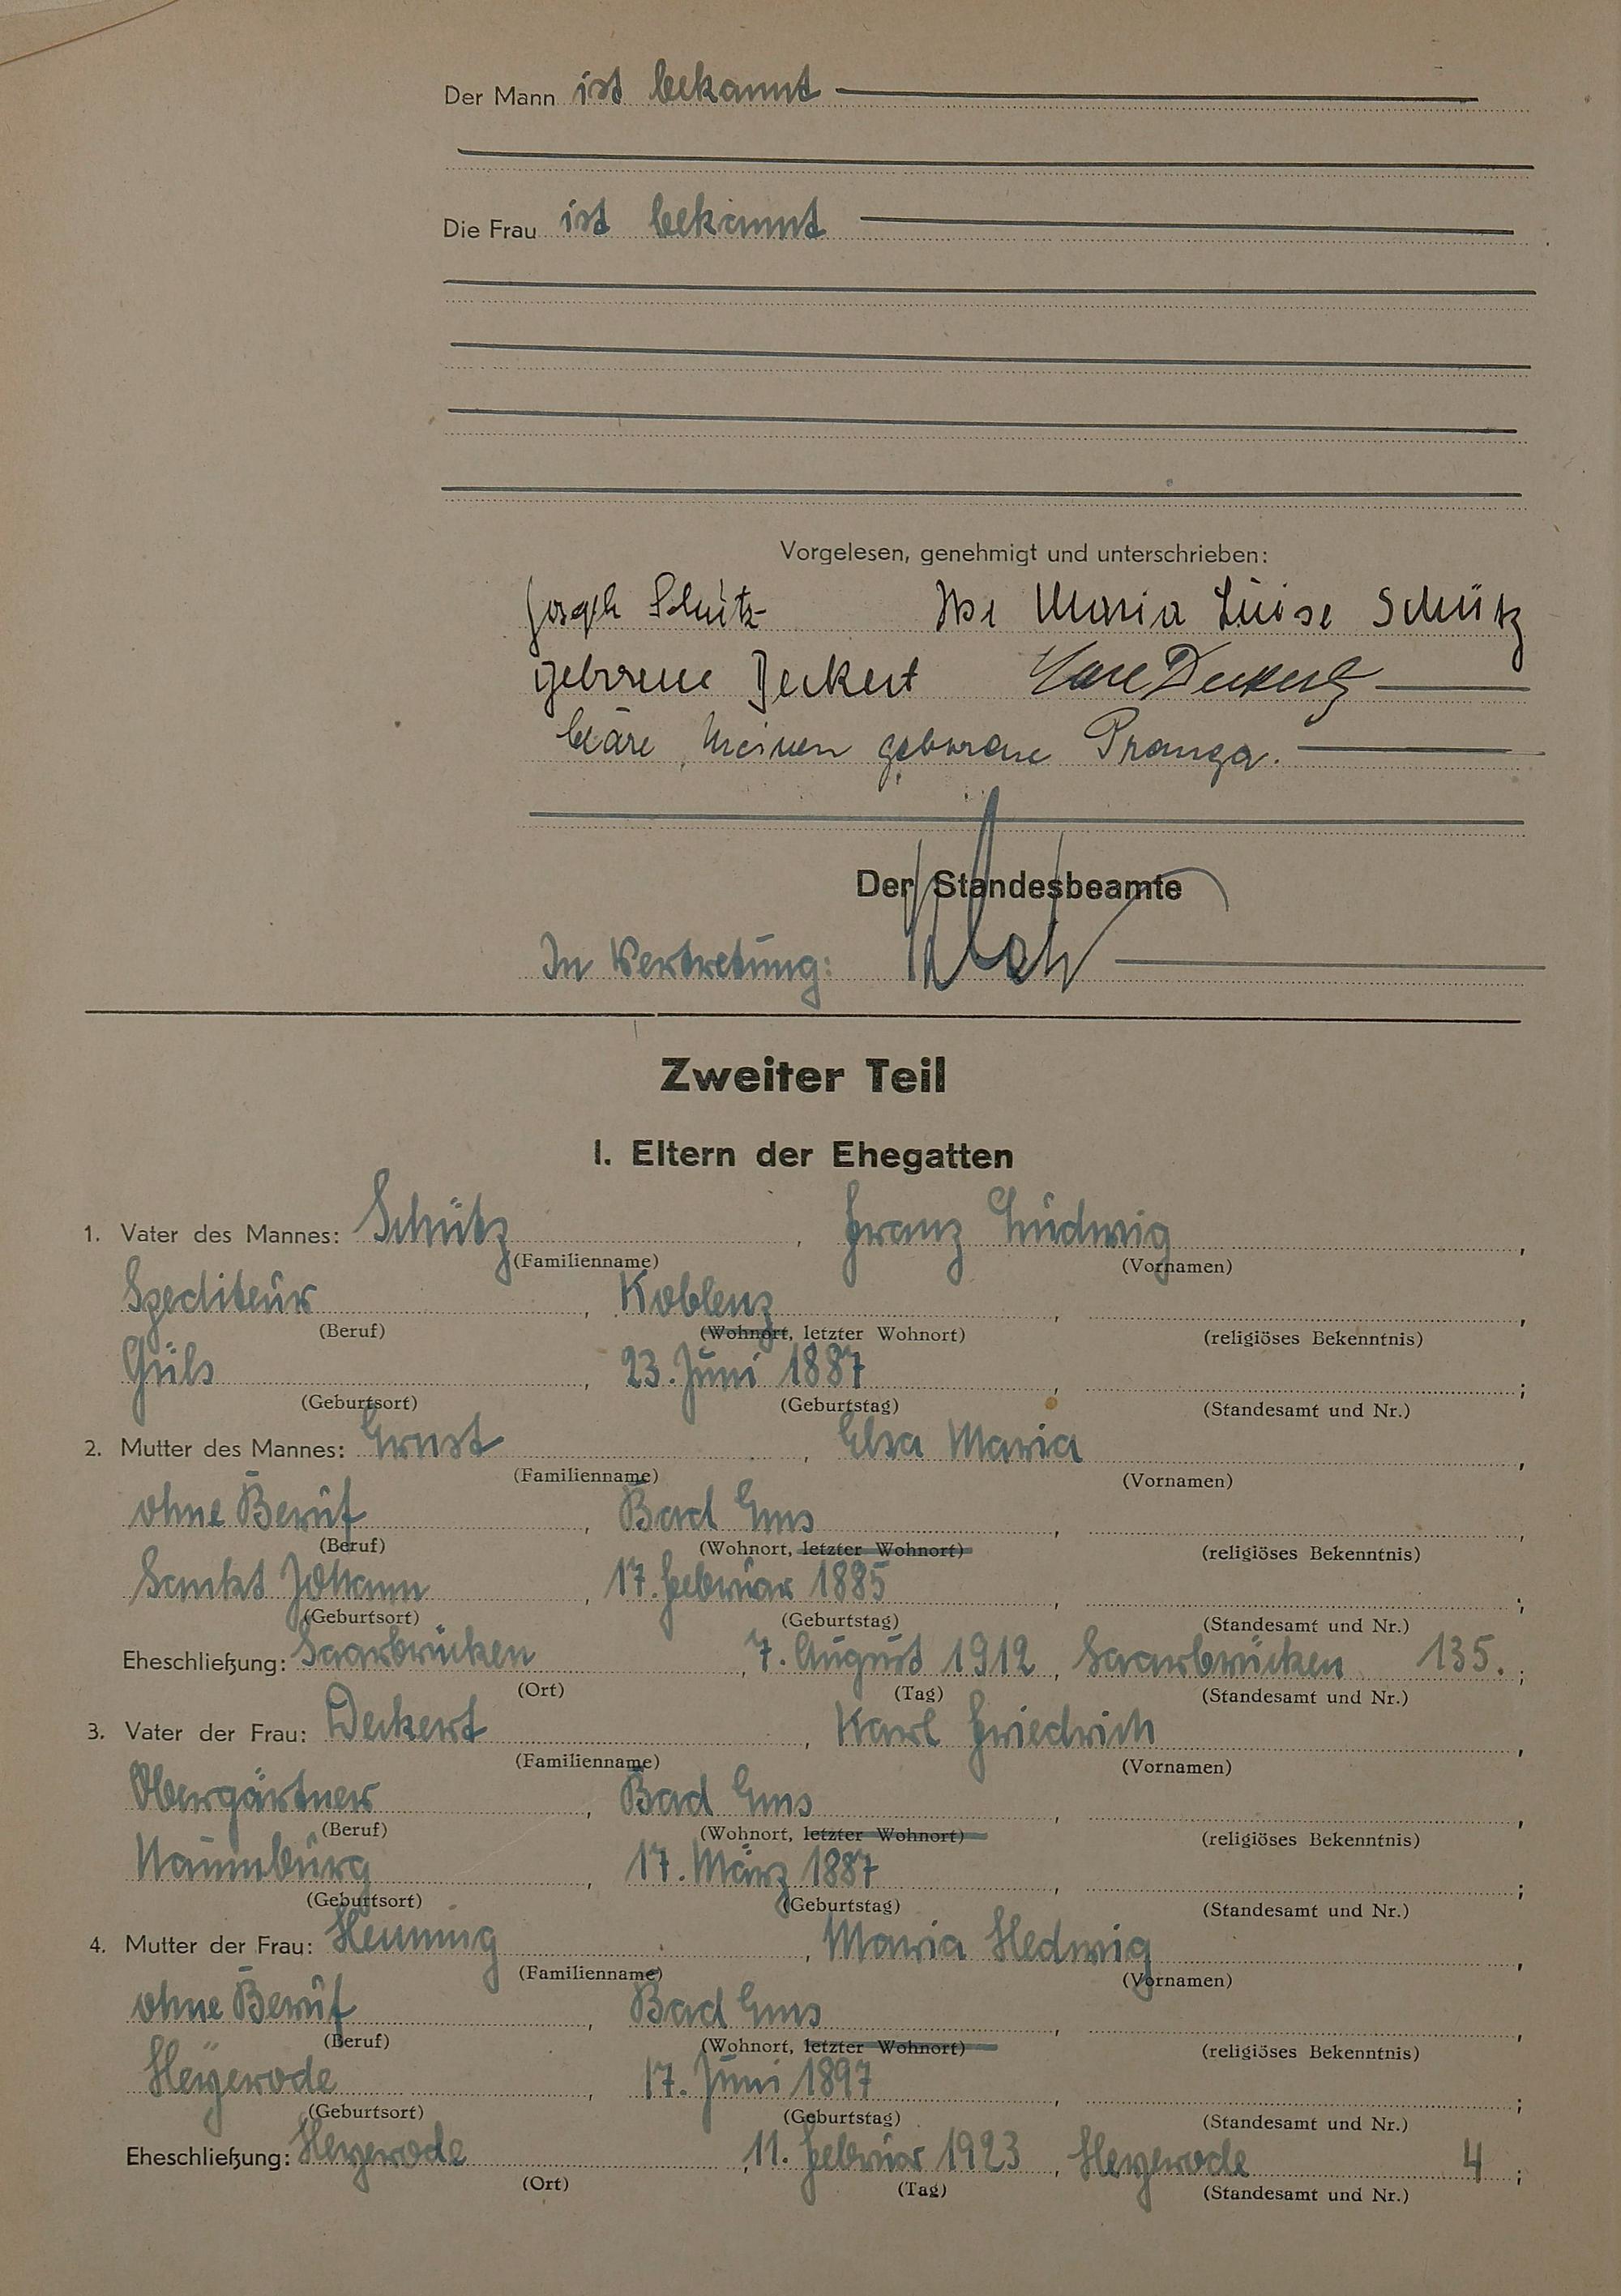 Der Mann ist bekannt
Die Frau ist bekannt
Vorgelesen, genehmigt und unterschrieben:
Joseph Schütz Ilse Maria Luise Schütz
geborene Deckert Karl Deckert
Kläre Meinen geborene Pranga.
Der Standesbeamte
In Vertretung:
Zweiter Teil
I. Eltern der Ehegatten
1. Vater des Mannes: Schütz, Franz Ludwig,
(Familienname) (Vornamen)
Spediteur, Koblenz, ,
(Beruf) (Wohnort, letzter Wohnort) (religiöses Bekenntnis)
Güls, 23. Juni 1887, ;
(Geburtsort) (Geburtstag) (Standesamt und Nr.)
2. Mutter des Mannes: Ernst, Elsa Maria,
(Familienname) (Vornamen)
ohne Beruf, Bad Ems, ,
(Beruf) (Wohnort, letzter Wohnort) (religiöses Bekenntnis)
Sankt Johann, 17. Februar 1885, ;
(Geburtsort) (Geburtstag) (Standesamt und Nr.)
Eheschließung: Saarbrücken, 7. August 1912, Saarbrücken 135.;
(Ort) (Tag) (Standesamt und Nr.)
3. Vater der Frau: Deckert, Karl Friedrich,
(Familienname) (Vornamen)
Obergärtner, Bad Ems, ,
(Beruf) (Wohnort, letzter Wohnort) (religiöses Bekenntnis)
Naumburg, 17. März 1887, ;
(Geburtsort) (Geburtstag) (Standesamt und Nr.)
4. Mutter der Frau: Henning, Maria Hedwig,
(Familienname) (Vornamen)
ohne Beruf, Bad Ems, ,
(Beruf) (Wohnort, letzter Wohnort) (religiöses Bekenntnis)
Heyerode, 17. Juni 1897, ;
(Geburtsort) (Geburtstag) (Standesamt und Nr.)
Eheschließung: Heyerode, 11. Februar 1923, Heyerode 4;
(Ort) (Tag) (Standesamt und Nr.)